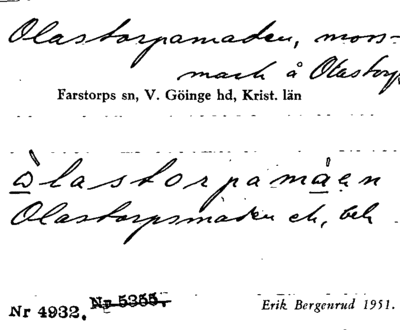 Olastorpamaden, moss-
mark å Olastorp
Farstorps sn, V. Göinge hd, Krist. län
òlastorpamåen
Olastorpsmaden ek, bek
Nr 4932. Nr 5355.
Erik Bergenrud 1951.